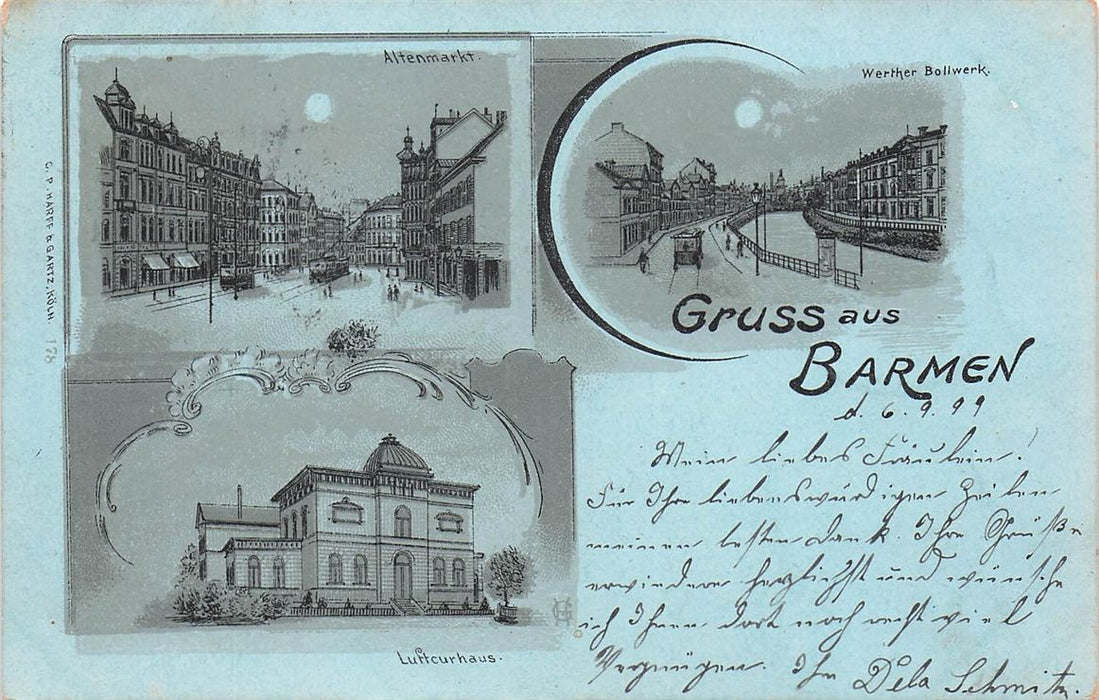 Altenmarkt.
Werther Bollwerk.
C. P. HARFF & GARTZ, KÖLN. 178
Gruss aus
BARMEN
d. 6. 9. 99
Mein liebes Fräulein!
Für Ihre liebenswürdigen Zeilen
meinen besten Dank. Ihre Grüße
erwiedere herzlichst und wünsche
ich Ihnen dort noch recht viel
Vergnügen. Ihr Dela Schmitz.
Luftcurhaus.